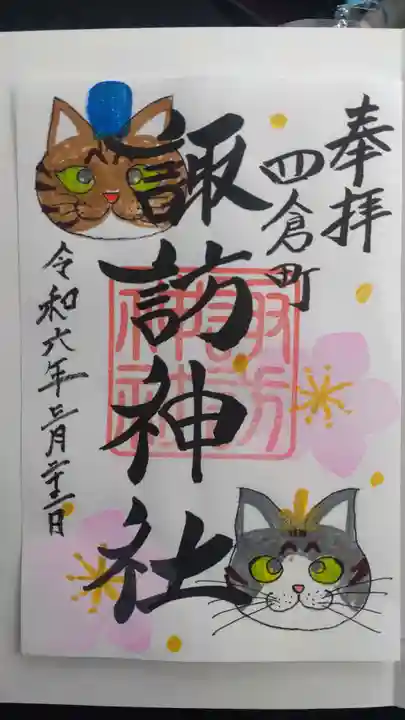 奉拝
四倉町
諏訪神社
諏訪神社
令和六年三月二十二日